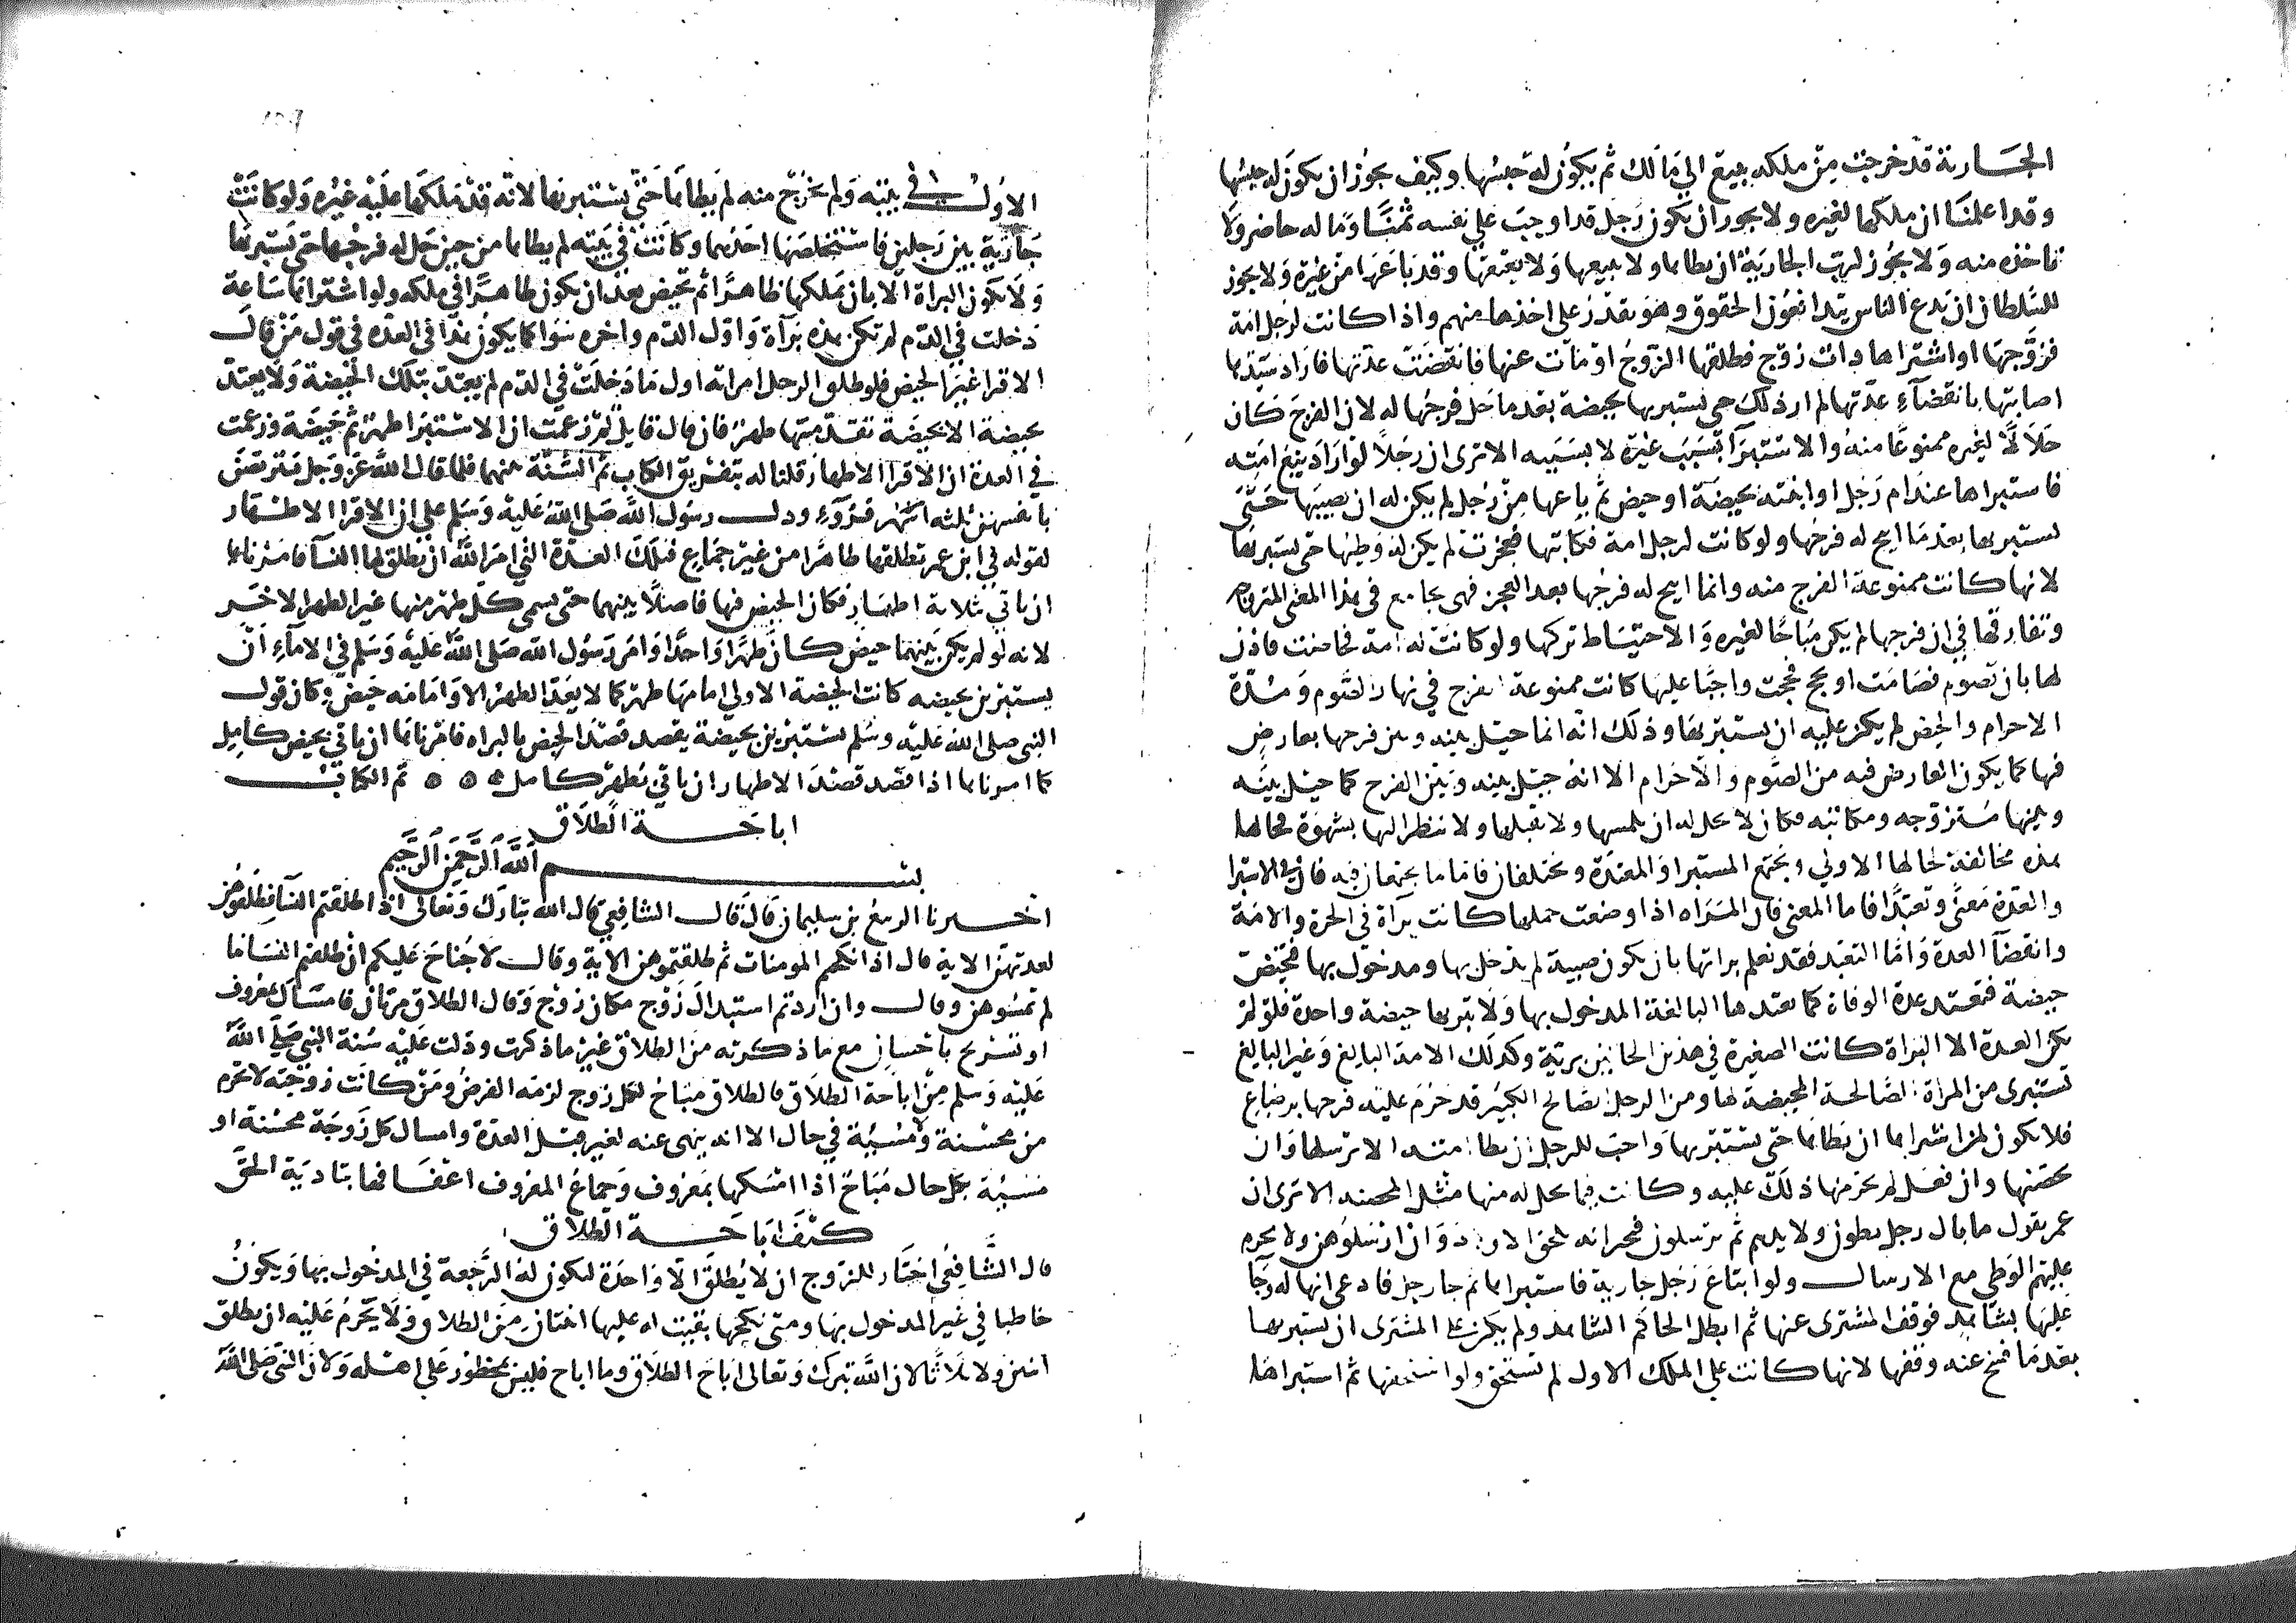 الجارية قد خرجت من ملكه ببيع الي مالك ثم يكون له حبسها وكيف يجوز ان يكون له حبسها
وقد اعلمنا ان ملكها لغيره ولا يجوز ان يكون رجل قد اوجب علي نفسه ثمنا وماله حاضر ولا
تاخذه منه ولا يجوز لرب الجارية ان يطاها ولا يبيعها ولا يعتقها وقد باعها من غيره ولا يجوز
للسلطان ان يدع الناس يتدافعون الحقوق وهو يقدر على اخذها منهم واذا كانت لرجل امة
فزوجها او اشتراها ذات زوج فطلقها الزوج او مات عنها فانقضت عدتها فاراد سيدها
اصابتها بانقضآء عدتها لم ار ذلك حتى يستبريها بحيضة بعد ما حل فرجها له لان الفرج كان
حلالا لغيره ممنوعا منه والاستبرا بسبب غيره لا بسببه الا ترى ان رجلا لو اراد بيع امته
فاستبراها عند ام رجل او ابنته بحيضة او حيض ثم باعها من رجل لم يكن له ان يصيبها حتى
يستبريها بعد ما ابيح له فرجها ولو كانت لرجل امة فكاتبها فعجزت لم يكن له وطيها حتى يستبريها
لانها كانت ممنوعة الفرج منه وانما ابيح له فرجها بعد العجز فهى تجامع في هذا المعنى المتزوجه
وتفارقها في ان فرجها لم يكن مباحا لغيره والاحتياط تركها ولو كانت له امة فحاضت فاذن
لها بان تصوم فصامت او تحج فحجت واجبا عليها كانت ممنوعة الفرج في نهار الصوم ومدة
الاحرام والحيض لم يكن عليه ان يستبريها وذلك انه انما حيل بينه وبين فرجها بعارض
فيها كما يكون العارض فيه من الصوم والاحرام لا انه حيل بينه وبين الفرج كما حيل بينه
وبينها متزوجه ومكاتبه فكان لا يحل له ان يلمسها ولا يقبلها ولا ينظر اليها بشهوة فحالها
هذه مخالفة حالها الاولي ويجتمع المستبراة والمعتدة ويختلفان فاما ما يجتمعان فيه فان في الاستبرا
والعدة معنى وتعبدا فاما المعنى فان المراه اذا وضعت حملها كانت برآة في الحرة والامة
وانقضآ العدة واما التعبد فقد نعلم براتها بان تكون صبية لم يدخل بها ومدخول بها فتحيض
حيضة فتعتد عدة الوفاة كما تعتدها البالغة المدخول بها ولا تبريها حيضة واحدة فلو لم
تكن العدة الا البراة كانت الصغيرة في هذين الحالين برية وكذلك الامة البالغ وغير البالغ
تستبرى من المراة الصالحة المحيضة لها ومن الرجل الصالح الكبير قد حرم عليه فرجها برضاع
فلا يكون لمن اشتراها ان يطاها حتى يستبريها واحب للرجل ان يطا امته الا ترسلها وان
يحصنها وان فعل لم يحرمها ذلك عليه وكانت فيما يحل له منها مثل المحصنه الا ترى ان
عمر يقول ما بال رجل يطون ولايدهم ثم يرسلون فيخبر انه تلحق الاولاد وان ارسلوهن ولا يحرم
عليهم الوطي مع الارسال ولو ابتاع رجل جارية فاستبراها ثم جا رجل فادعى انها له وجا
عليها بشاهد فوقف المشترى عنها ثم ابطل الحاكم الشاهد لم يكن على المشترى ان يستبريها
بعد ما فسخ عنه وقفها لانها كانت علي الملك الاول لم تستحق ولو استحقها ثم استبراها
الاول في بيته ولم تخرج منه لم يطاها حتي يستبريها لانه قد ملكها عليه غيره ولو كانت
جارية بين رجلين فاستخلصها احدهما وكانت في بيته لم يطاها من حين حل له فرجها حتي يستبريها
ولا يكون البراة الا بان يملكها طاهرا ثم تحيض بعد ان يكون طاهرا في ملكه ولو اشتراها ساعة
دخلت في الدم لم تكن هذه برآة واول الدم واخره سوا كما يكون هذا في العده في قول من قال
الاقرا غير الحيض فلو طلق الرجل امراته اول ما دخلت في الدم لم يعتد بتلك الحيضة ولا يعتد
بحيضة الا بحيضة تقدمتها طهر فان قال قايل لم زعمت ان الاستبرا طهر ثم حيضة وزعمت
في العدة ان الاقرا الاطهار قلنا له بتفريق الكتاب ثم السنة بينهما فلما قال الله عز وجل يتربصن
بانفسهن ثلثه اشهر قروء ودل رسول الله صلى الله عليه وسلم علي ان الاقرا الاطهار
لقوله في ابن عمر تطلقها طاهرا من غير جماع فتلك العدة التي امر الله ان يطلق لها النسآ فامرناها
ان تاتي ثلاثة اطهار فكان الحيض فيها فاصلا بينهما حتى يسمى كل طهر منها غير الطهر الاخر
لانه لو لم يكن بينهما حيض كان طهرا واحدا وامر رسول الله صلى الله عليه وسلم في الامآء ان
يستبرين بحيضه كانت الحيضة الاولي امامها طهر كما لا يعد الطهر الا وامامه حيض وكان قول
النبي صلي الله عليه وسلم يستبرين بحيضة يقصد قصد الحيض بالبراه فامرناها ان تاتي بحيض كامل
كما امرناها اذا قصد قصد الاطهار ان تاتي بطهر كامل ٥ ٥ ٥ تم الكتاب
اباحة الطلاق
بسم الله الرحمن الرحيم
اخبرنا الربيع بن سليمان قال قال الشافعي قال الله تبارك وتعالى اذا طلقتم النسآ فطلقوهن
لعدتهن الاية قال اذا نكحتم المومنات ثم طلقتموهن الاية وقال لا جناح عليكم ان طلقتم النسا ما
لم تمسوهن وقال وان اردتم استبدال زوج مكان زوج وقال الطلاق مرتان فامساك بمعروف
او تسريح باحسان مع ما ذكرته من الطلاق غير ما ذكرت ودلت عليه سنة النبي صلي الله
عليه وسلم من اباحة الطلاق فالطلاق مباح لكل زوج لزمه الفرض ومن كانت زوجته لا تحرم
من محسنة ولا مسيئة في حال الا انه ينهى عنه لغير قبل العدة وامساك كل زوجة محسنة او
مسيئة بكل حال مباح اذا امسكها بمعروف وجماع المعروف اعفافها بتادية الحق
كيف اباحة الطلاق
قال الشافعي اختار للزوج ان لا يطلق الا واحدة ليكون له الرجعة في المدخول بها ويكون
خاطبا في غير المدخول بها ومتى نكحها بقيت له عليها اثنتان من الطلاق ولا يحرم عليه ان يطلق
اثنين ولا ثلاثا لان الله تبرك وتعالى اباح الطلاق وما اباح فليس بمحظور علي اهله ولان النبي صلى الله